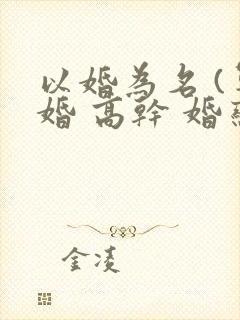 以婚為名(
婚 高幹 婚
金凌